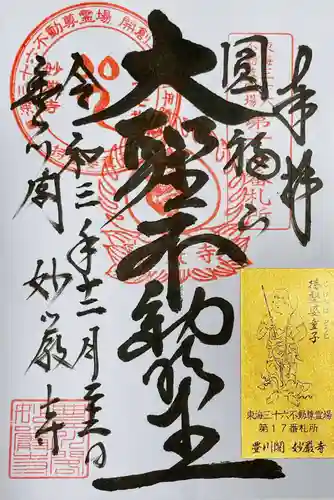 奉拝
圓福山
大聖不動明王
令和三年十二月
豊川閣 妙厳寺
東海三十六不動尊霊場
第十七番札所
持堅婆童子
東海三十六不動尊霊場
第17番札所
豊川閣 妙厳寺